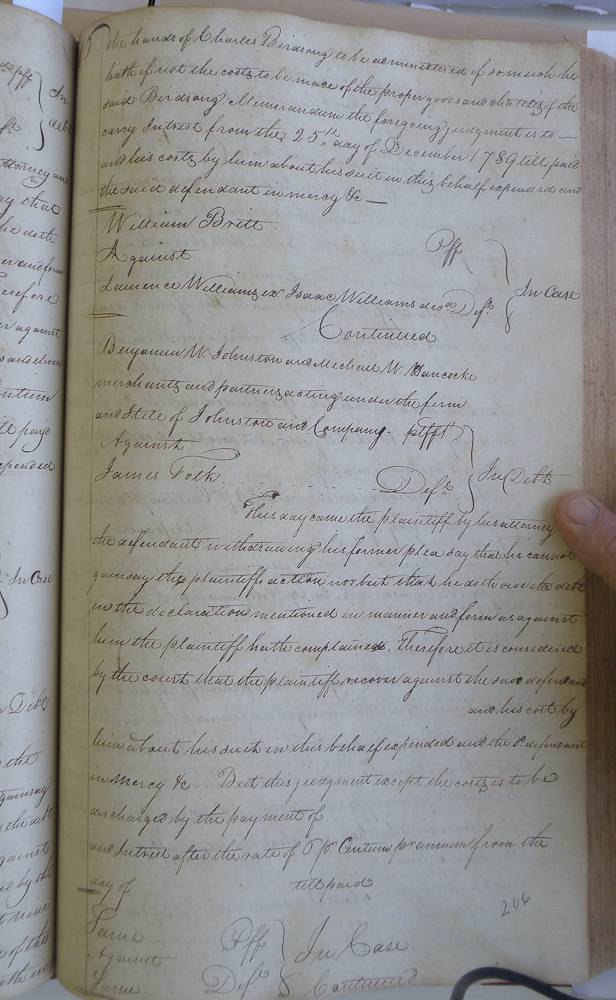 the hands of Charles Birdsong to be administered if so much he
hath if not the costs to be made of the proper goods and chattels of the
said Birdsong Memorandum the foregoing judgment is to
carry Intrest from the 25th day of December 1789 till paid
and his costs by him about his suit in this behalf expended and
the said defendant in mercy &c
William Brett
Pff
Against
In Case
Laurence Williams ex Isaac Williams decd Deft
Continued
Benjamin W. Johnston and Michael W. Hancocke
merchants and partners acting under the firm
and Stile of Johnston and Company ptff
Against
In Debt
James Polk
Deft
This day came the plaintiff by his attorney
the defendant withdrawing his former plea say that he cannot
gainsay the plaintiffs action nor but that he doth owe the debt
in the declaration mentioned in manner and form as against
him the plaintiff hath complained. Therefore it is considered
by the court that the plaintiff recover against the said defendant
and his cost by
him about his suit in this behalf expended and the sd defendant
in Mercy &c But this judgment except the costs is to be
discharged by the payment of
and Intrest after the rate of pr Centum pr annum from the
day of till paid
Same
Pff
In Case
Against
Same
Deft
Continued
206